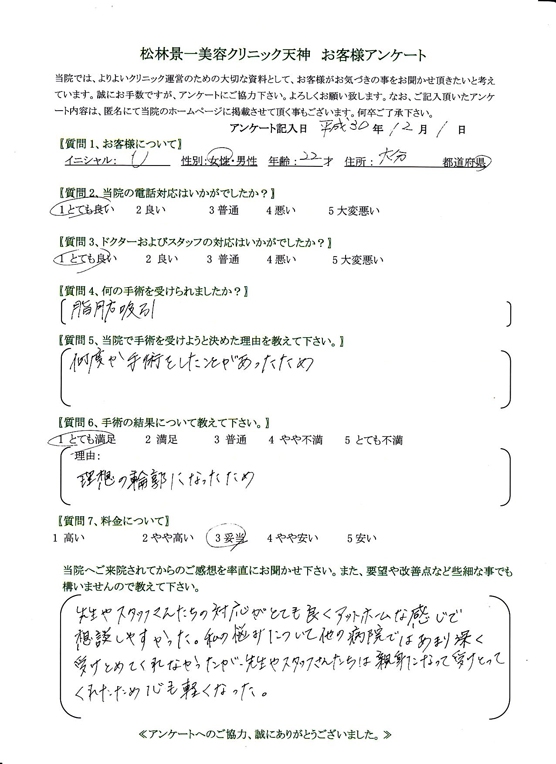 松林景一美容クリニック天神　お客様アンケート
当院では、よりよいクリニック運営のための大切な資料として、お客様がお気づきの事をお聞かせ頂きたいと考え
ています。誠にお手数ですが、アンケートにご協力下さい。よろしくお願い致します。なお、ご記入頂いたアンケ
ート内容は、匿名にて当院のホームページに掲載させて頂く事もございます。何卒ご了承下さい。
アンケート記入日　平成30年12月1日
〖質問1、お客様について〗
イニシャル：U　性別：女性・男性　年齢：22才　住所：大分　都道府県
〖質問2、当院の電話対応はいかがでしたか？〗
1 とても良い　2 良い　3 普通　4 悪い　5 大変悪い
〖質問3、ドクターおよびスタッフの対応はいかがでしたか？〗
1 とても良い　2 良い　3 普通　4 悪い　5 大変悪い
〖質問4、何の手術を受けられましたか？〗
脂肪吸引
〖質問5、当院で手術を受けようと決めた理由を教えて下さい。〗
何度か手術をしたことがあったため
〖質問6、手術の結果について教えて下さい。〗
1 とても満足　2 満足　3 普通　4 やや不満　5 とても不満
理由：
理想の輪郭になったため
〖質問7、料金について〗
1 高い　2 やや高い　3 妥当　4 やや安い　5 安い
当院へご来院されてからのご感想を率直にお聞かせ下さい。また、要望や改善点など些細な事でも
構いませんので教えて下さい。
先生やスタッフさんたちの対応がとても良くアットホームな感じで
相談しやすかった。私の悩みについて他の病院ではあまり深く
受けとめてくれなかったが、先生やスタッフさんたちは親身になって受けとって
くれたため心も軽くなった。
≪アンケートへのご協力、誠にありがとうございました。≫